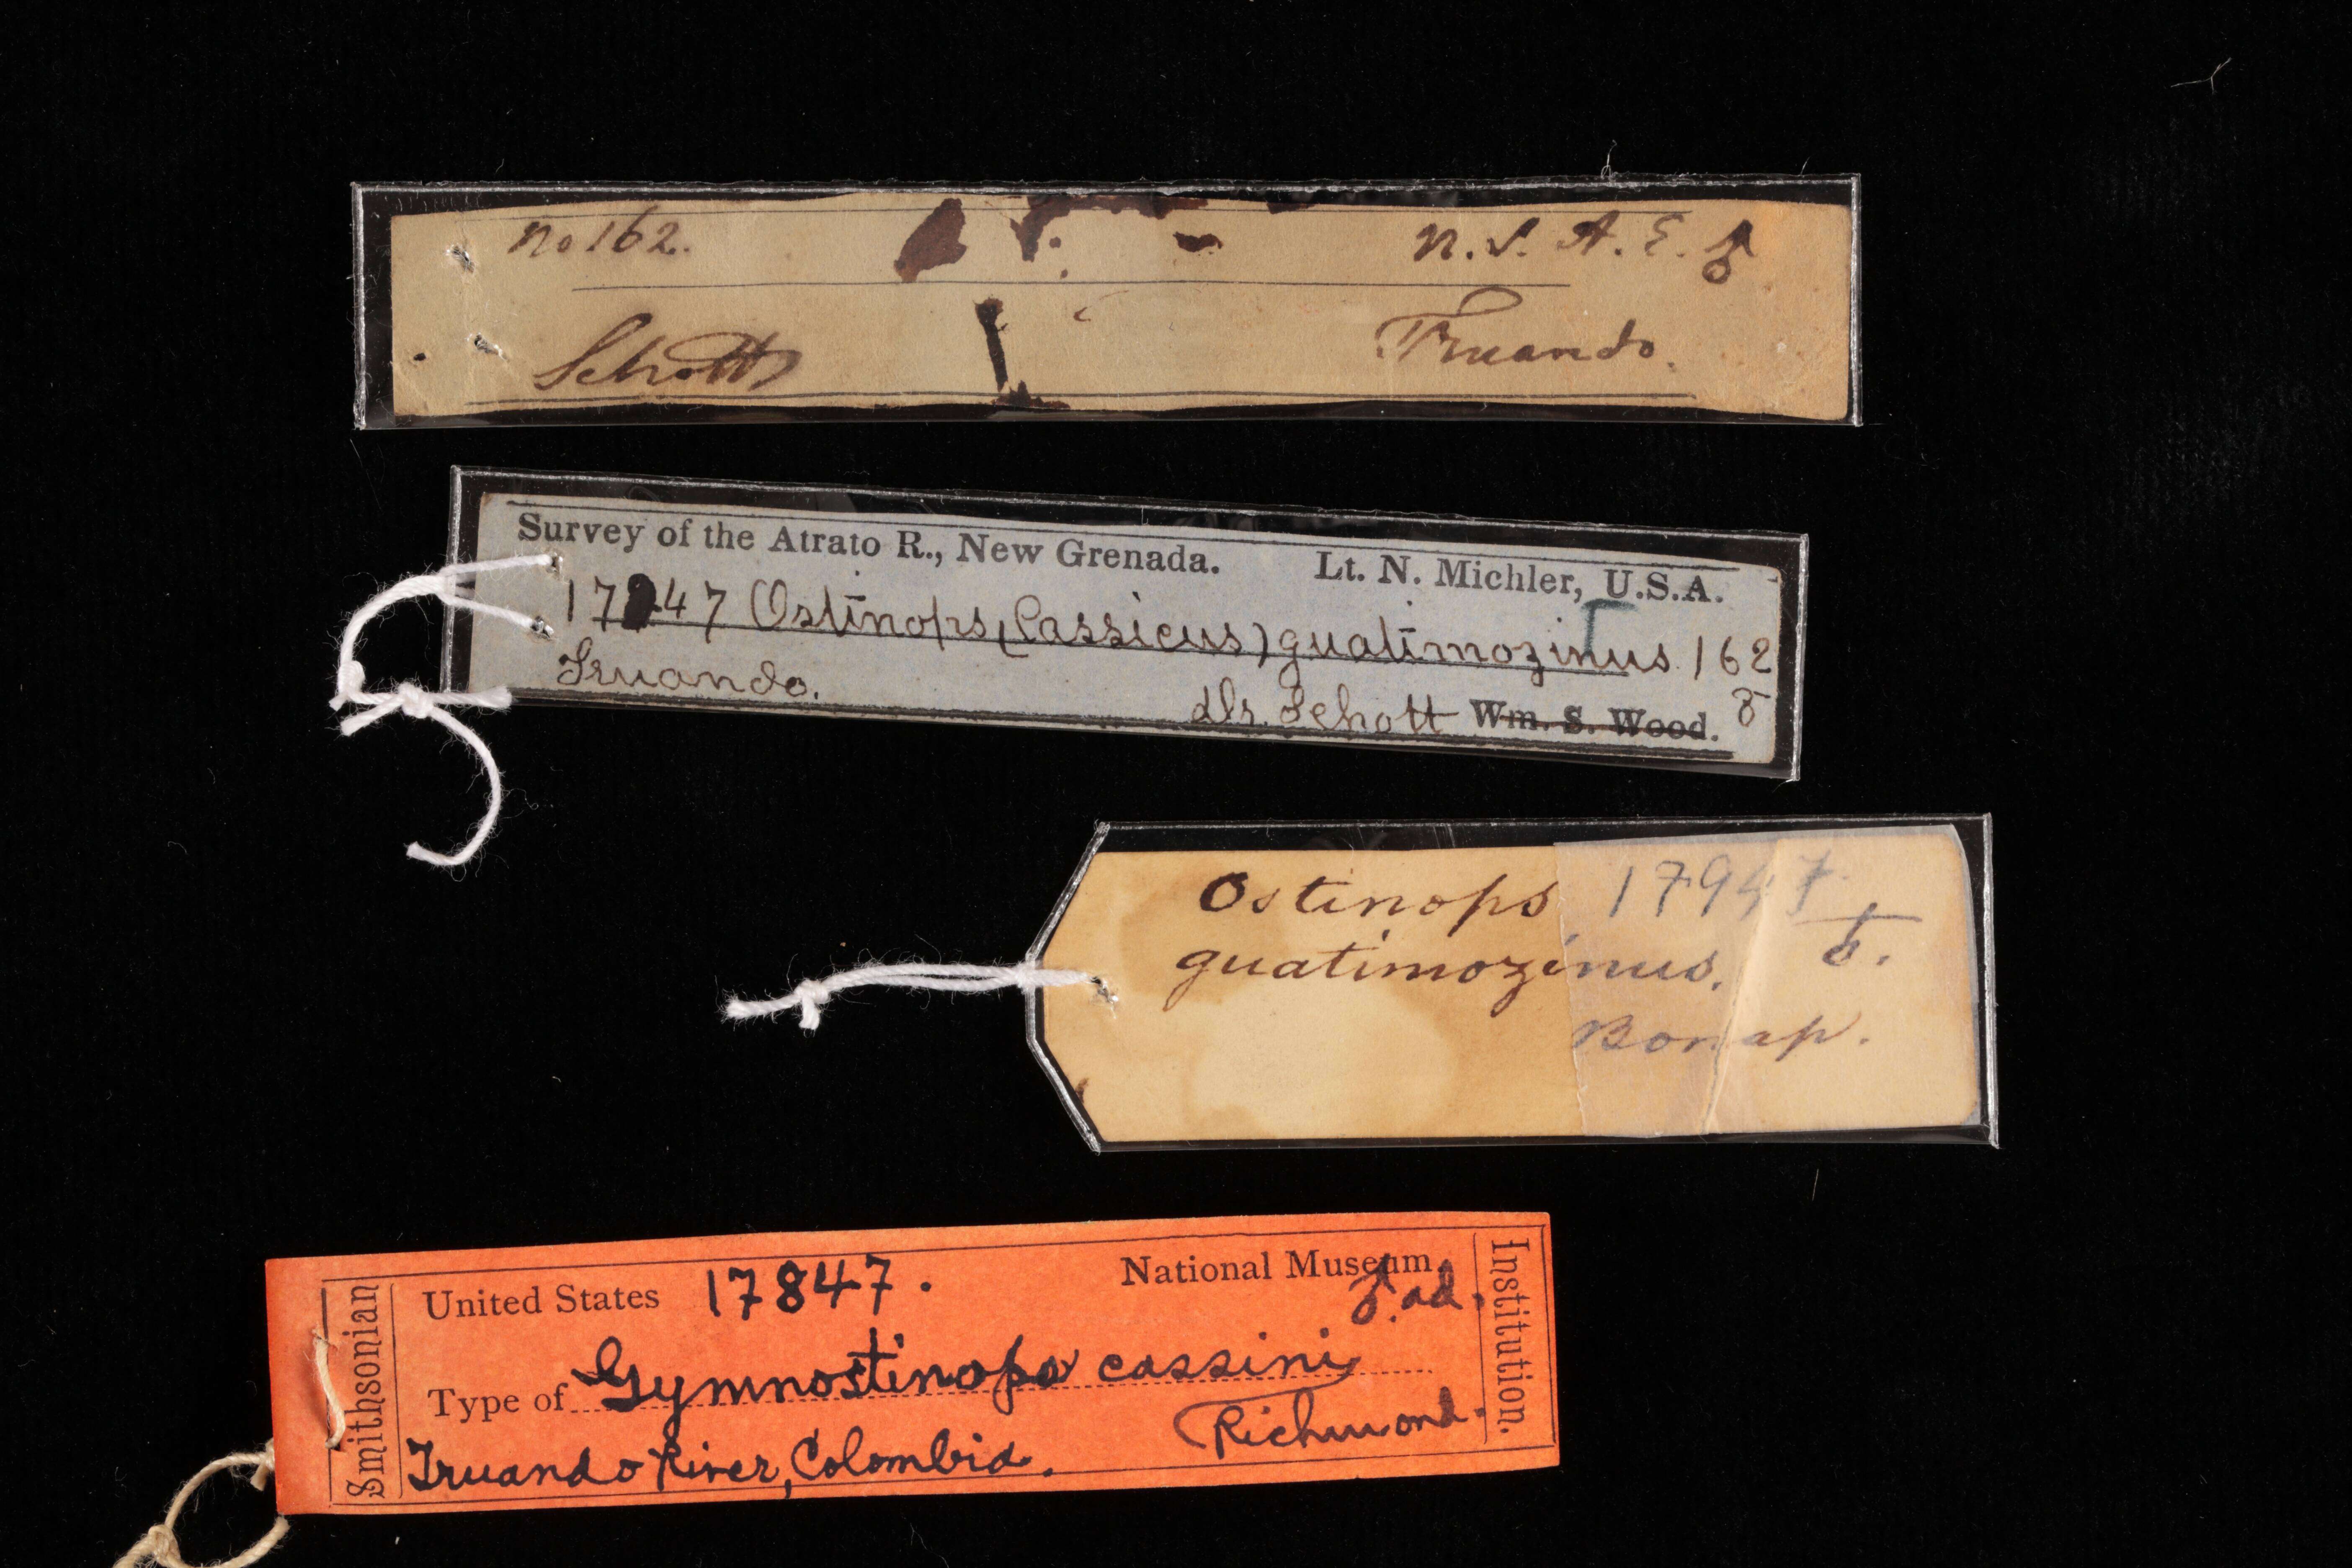 No 162. N. S. A. E. ♂
Schott Truando.
Survey of the Atrato R., New Grenada. Lt. N. Michler, U.S.A.
17947 Ostinops (Cassicus) guatimozinus 162
Truando. Dr. Schott Wm. S. Wood. ♂
Ostinops 17947
guatimozinus. ♂.
Bonap.
United States 17847. National Museum
♂ ad.
Type of Gymnostinops cassini
Richmond.
Truando River, Colombia.
Smithsonian
Institution.